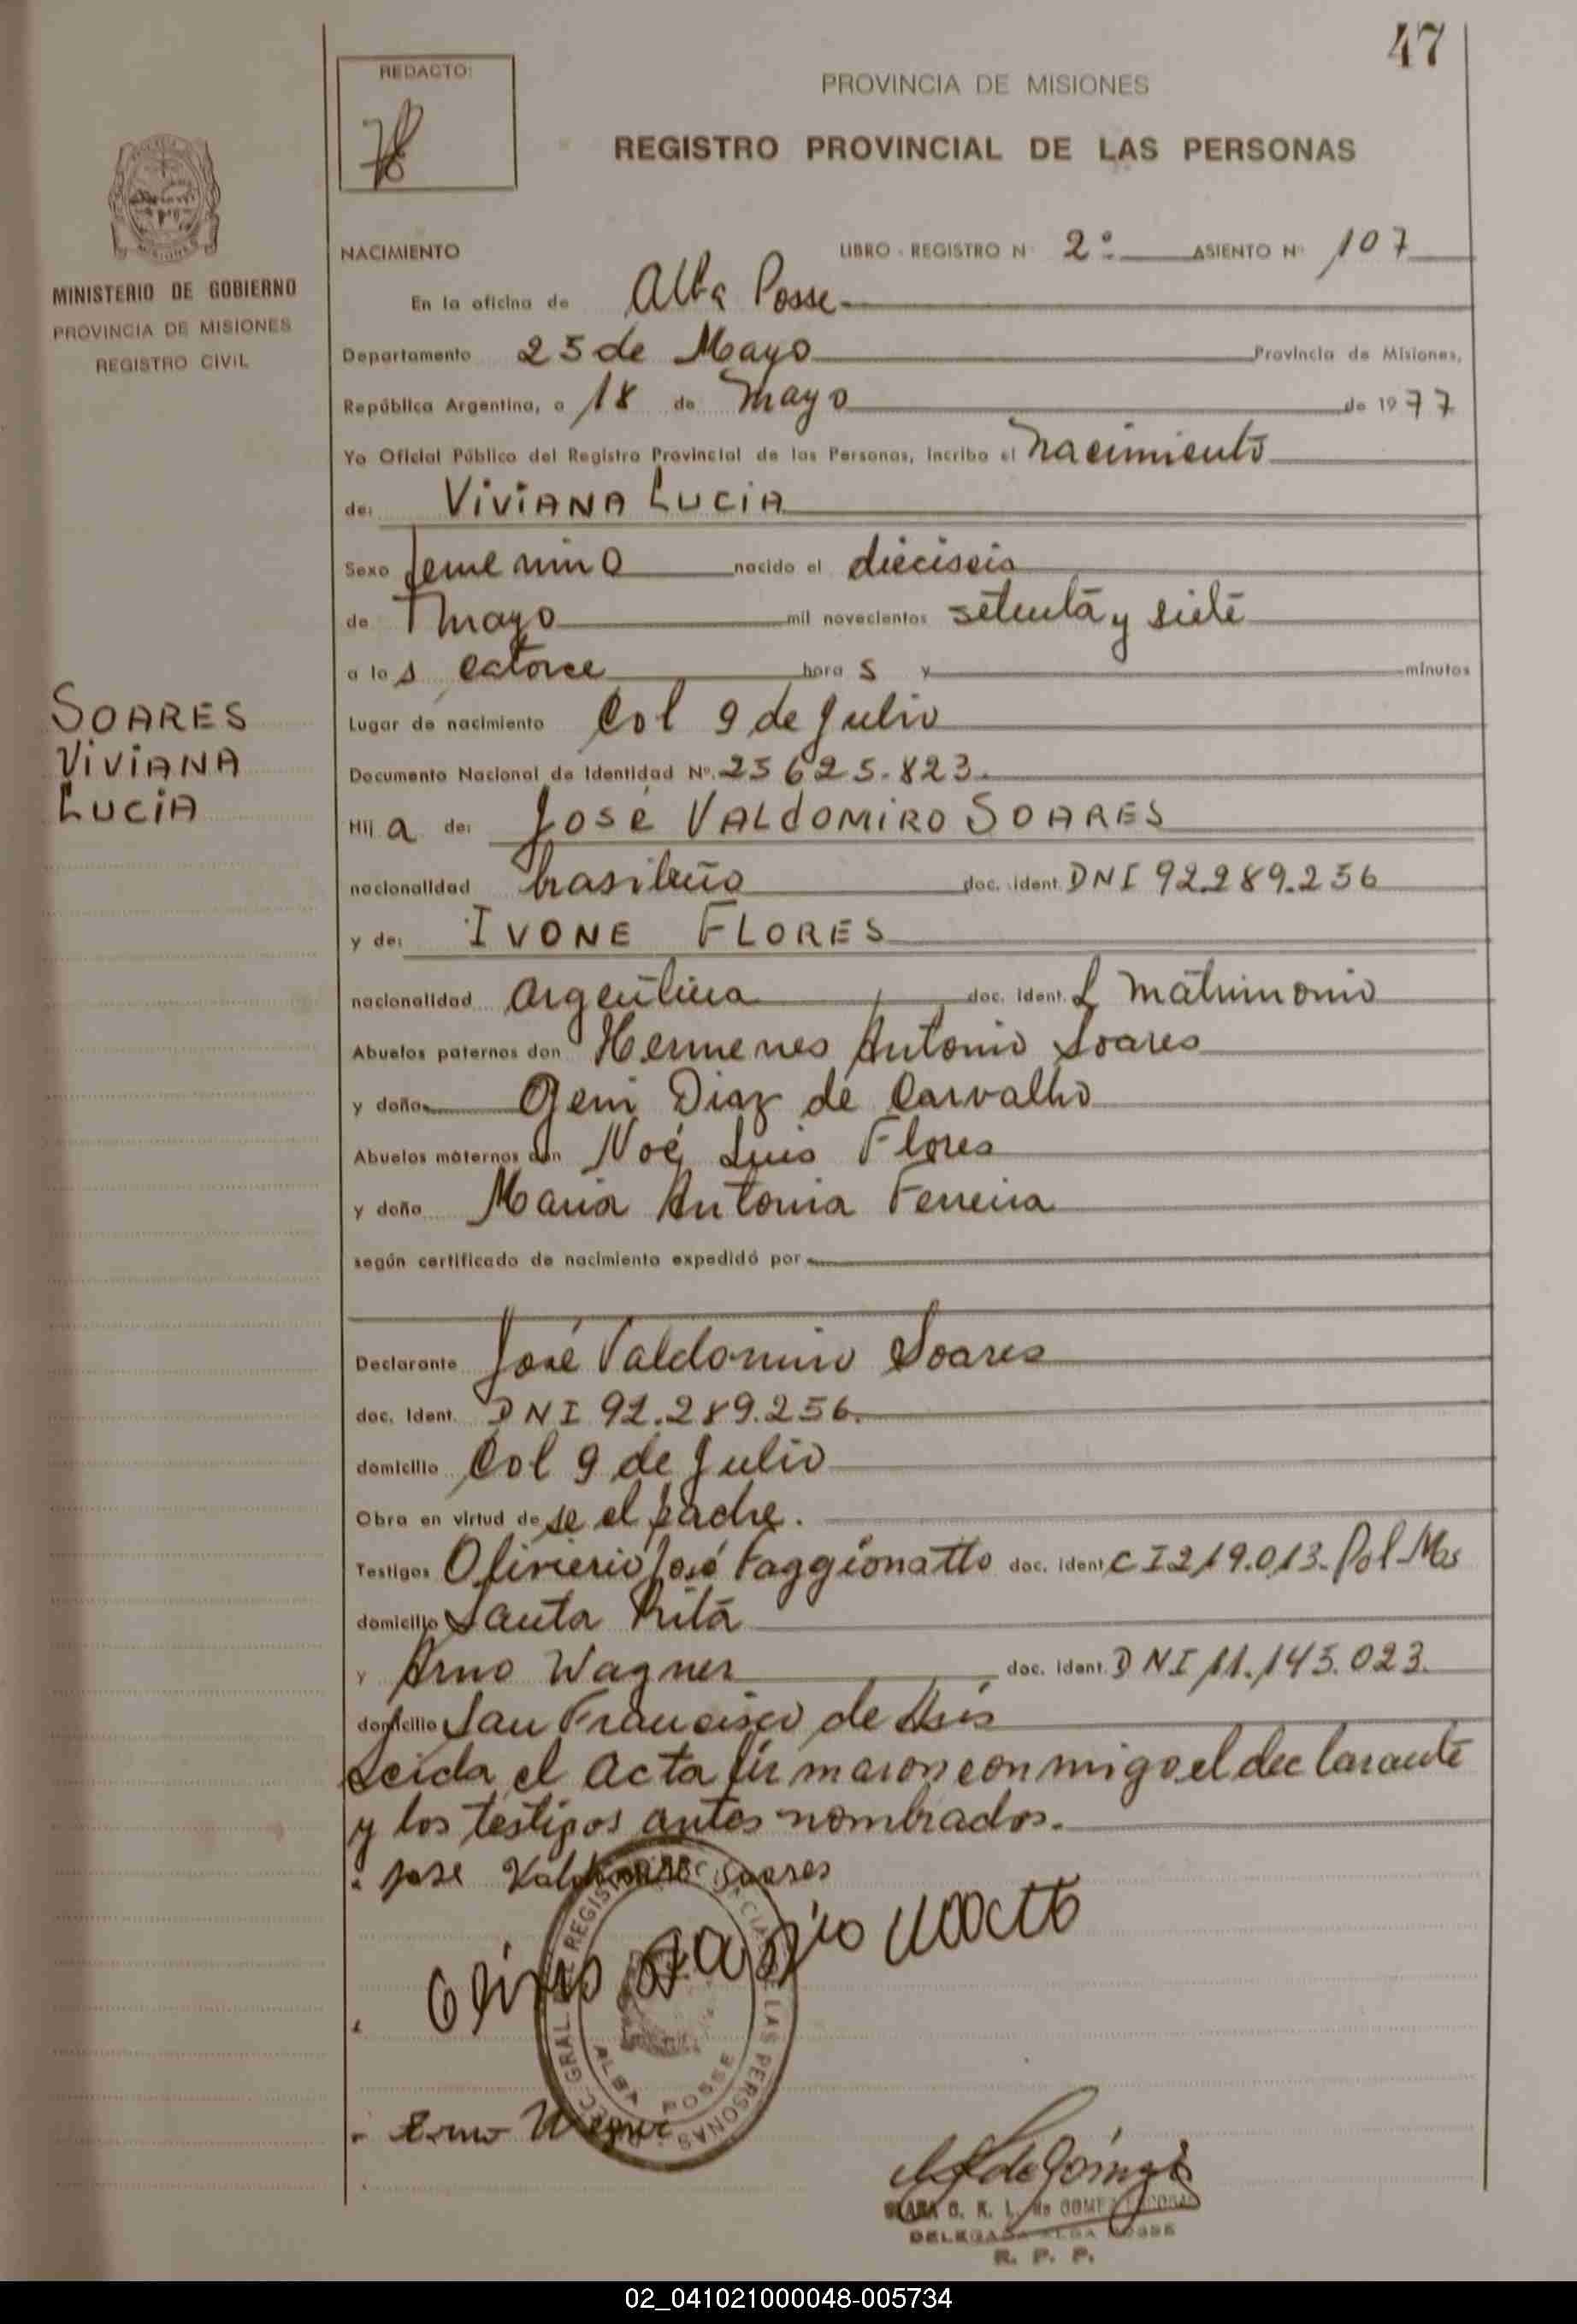 47
REDACTO:
PROVINCIA DE MISIONES
REGISTRO PROVINCIAL DE LAS PERSONAS
MINISTERIO DE GOBIERNO
PROVINCIA DE MISIONES
REGISTRO CIVIL
SOARES
VIVIANA
LUCIA
NACIMIENTO LIBRO - REGISTRO N° 2° ASIENTO N° 107
En la oficina de Alba Posse
Departamento 25 de Mayo Provincia de Misiones,
República Argentina, a 18 de Mayo de 1977
Yo Oficial Público del Registro Provincial de las Personas, incribo el Nacimiento
de: VIVIANA LUCIA
Sexo femenino nacido el dieciseis
de mayo mil novecientos setenta y siete
a las catorce horas y minutos
Lugar de nacimiento Col 9 de Julio
Documento Nacional de Identidad N° 25625.823
Hija de: JOSÉ VALDOMIRO SOARES
nacionalidad brasileño doc. ident. DNI 92.289.256
y de: IVONE FLORES
nacionalidad argentina doc. ident. L matrimonio
Abuelos paternos don Hermenes Antonio Soares
y doña Geni Diaz de Carvalho
Abuelos maternos don Noé Luis Flores
y doña Maria Antonia Ferreira
según certificado de nacimiento expedidó por
Declarante José Valdomiro Soares
doc. ident. DNI 92.289.256.
domicilio Col 9 de Julio
Obra en virtud de se el padre.
Testigos José Faggionatto doc. ident CI 219.013. Pol Mis
domicilio Santa Rita
y Arno Wagner doc. ident. DNI 11.145.023.
domicilio San Francisco de Asis
Leida el acta firmaron conmigo el declarante
y los testigos antes nombrados.
Jose Soares
ALBA POSSE
LAS PERSONAS
de Gomez
DELEGADA ALBA POSSE
R. P. P.
02_041021000048-005734